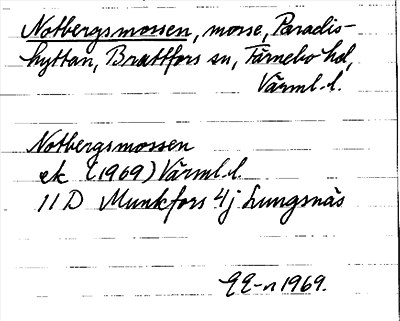 Notbergsmossen, mosse, Paradis-
hyttan, Brattfors sn, Färnebo hd,
Värml. l.
Notbergsmossen
ek (1969) Värml. l.
11 D Munkfors 4j Lungsnäs
1969.